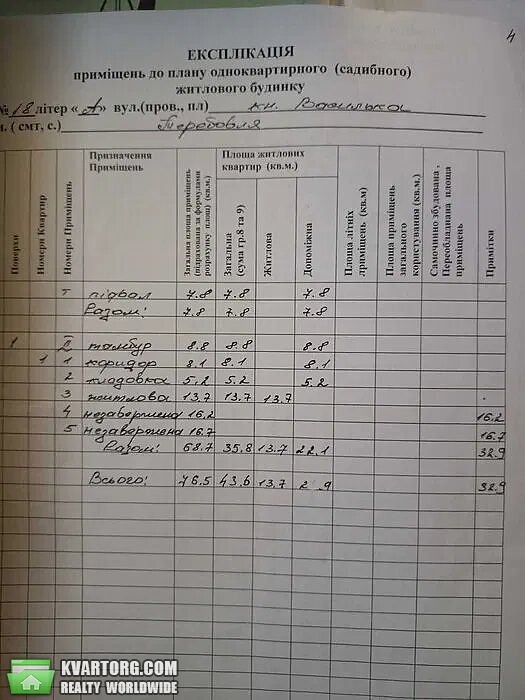 4
ЕКСПЛІКАЦІЯ
приміщень до плану одноквартирного (садибного)
житлового будинку
№ 18 літер « А» вул.(пров., пл) кн. Василька
м. ( смт, с.) Теребовля
Поверхи
Номери Квартир
Номери Приміщень
Призначення Приміщень
Загальна площа приміщень (підрахована за формулами розрахунку площ) (кв.м)
Площа житлових квартир (кв.м.)
Загальна (сума гр.8 та 9)
Житлова
Допоміжна
Площа літніх приміщень (кв.м)
Площа приміщень загального користування (кв.м.)
Самочинно збудована , Переобладнана площа приміщень
Примітки
I підвал 7.8 7.8 7.8
Разом: 7.8 7.8 7.8
1 I тамбур 8.8 8.8 8.8
1 1 коридор 8.1 8.1 8.1
2 кладовка 5.2 5.2 5.2
3 житлова 13.7 13.7 13.7
4 незавершена 16.2 16.2
5 незавершена 16.7 16.7
Разом: 68.7 35.8 13.7 22.1 32.9
Всього: 76.5 43.6 13.7 2 9 32.9
KVARTORG.COM
REALTY WORLDWIDE